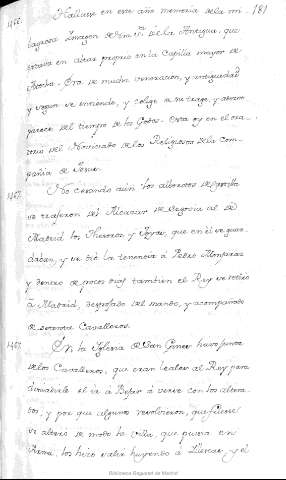 1466. Hallase en este año memoria de la mi-
181
lagrosa Imagen de la Antigua, que
estava en altar proprio en la Capilla mayor de
Atocha. Era de mucha veneracion, y antiguedad
y segun se entiende, y colige de su trage, y adorno
parece del tiempo de los Godos. Esta oy en el ora-
torio del Noviciado de los Religiosos de la Com-
pañia de Jesus.
1467. No cesando aún los alborotos de Castilla
se trageron del Alcazar de Segovia al de
Madrid los Thesoros y Joyas, que en él se guar-
daban, y se dió la tenencia á Pedro
y dentro de pocos dias tambien el Rey se volvio
á Madrid, despojado del mando, y acompañado
de sesenta Cavalleros.
1467. En la Iglesia de San Gines huvo junta
de los Cavalleros, que eran leales al Rey para
disuadirle el ir á Bejar á verse con los altera-
dos, y por que algunos resolvieron, que fuese
se alteró de modo la villa, que puesta en
Arma, los hizo salir huyendo á y él
Biblioteca Regional de Madrid